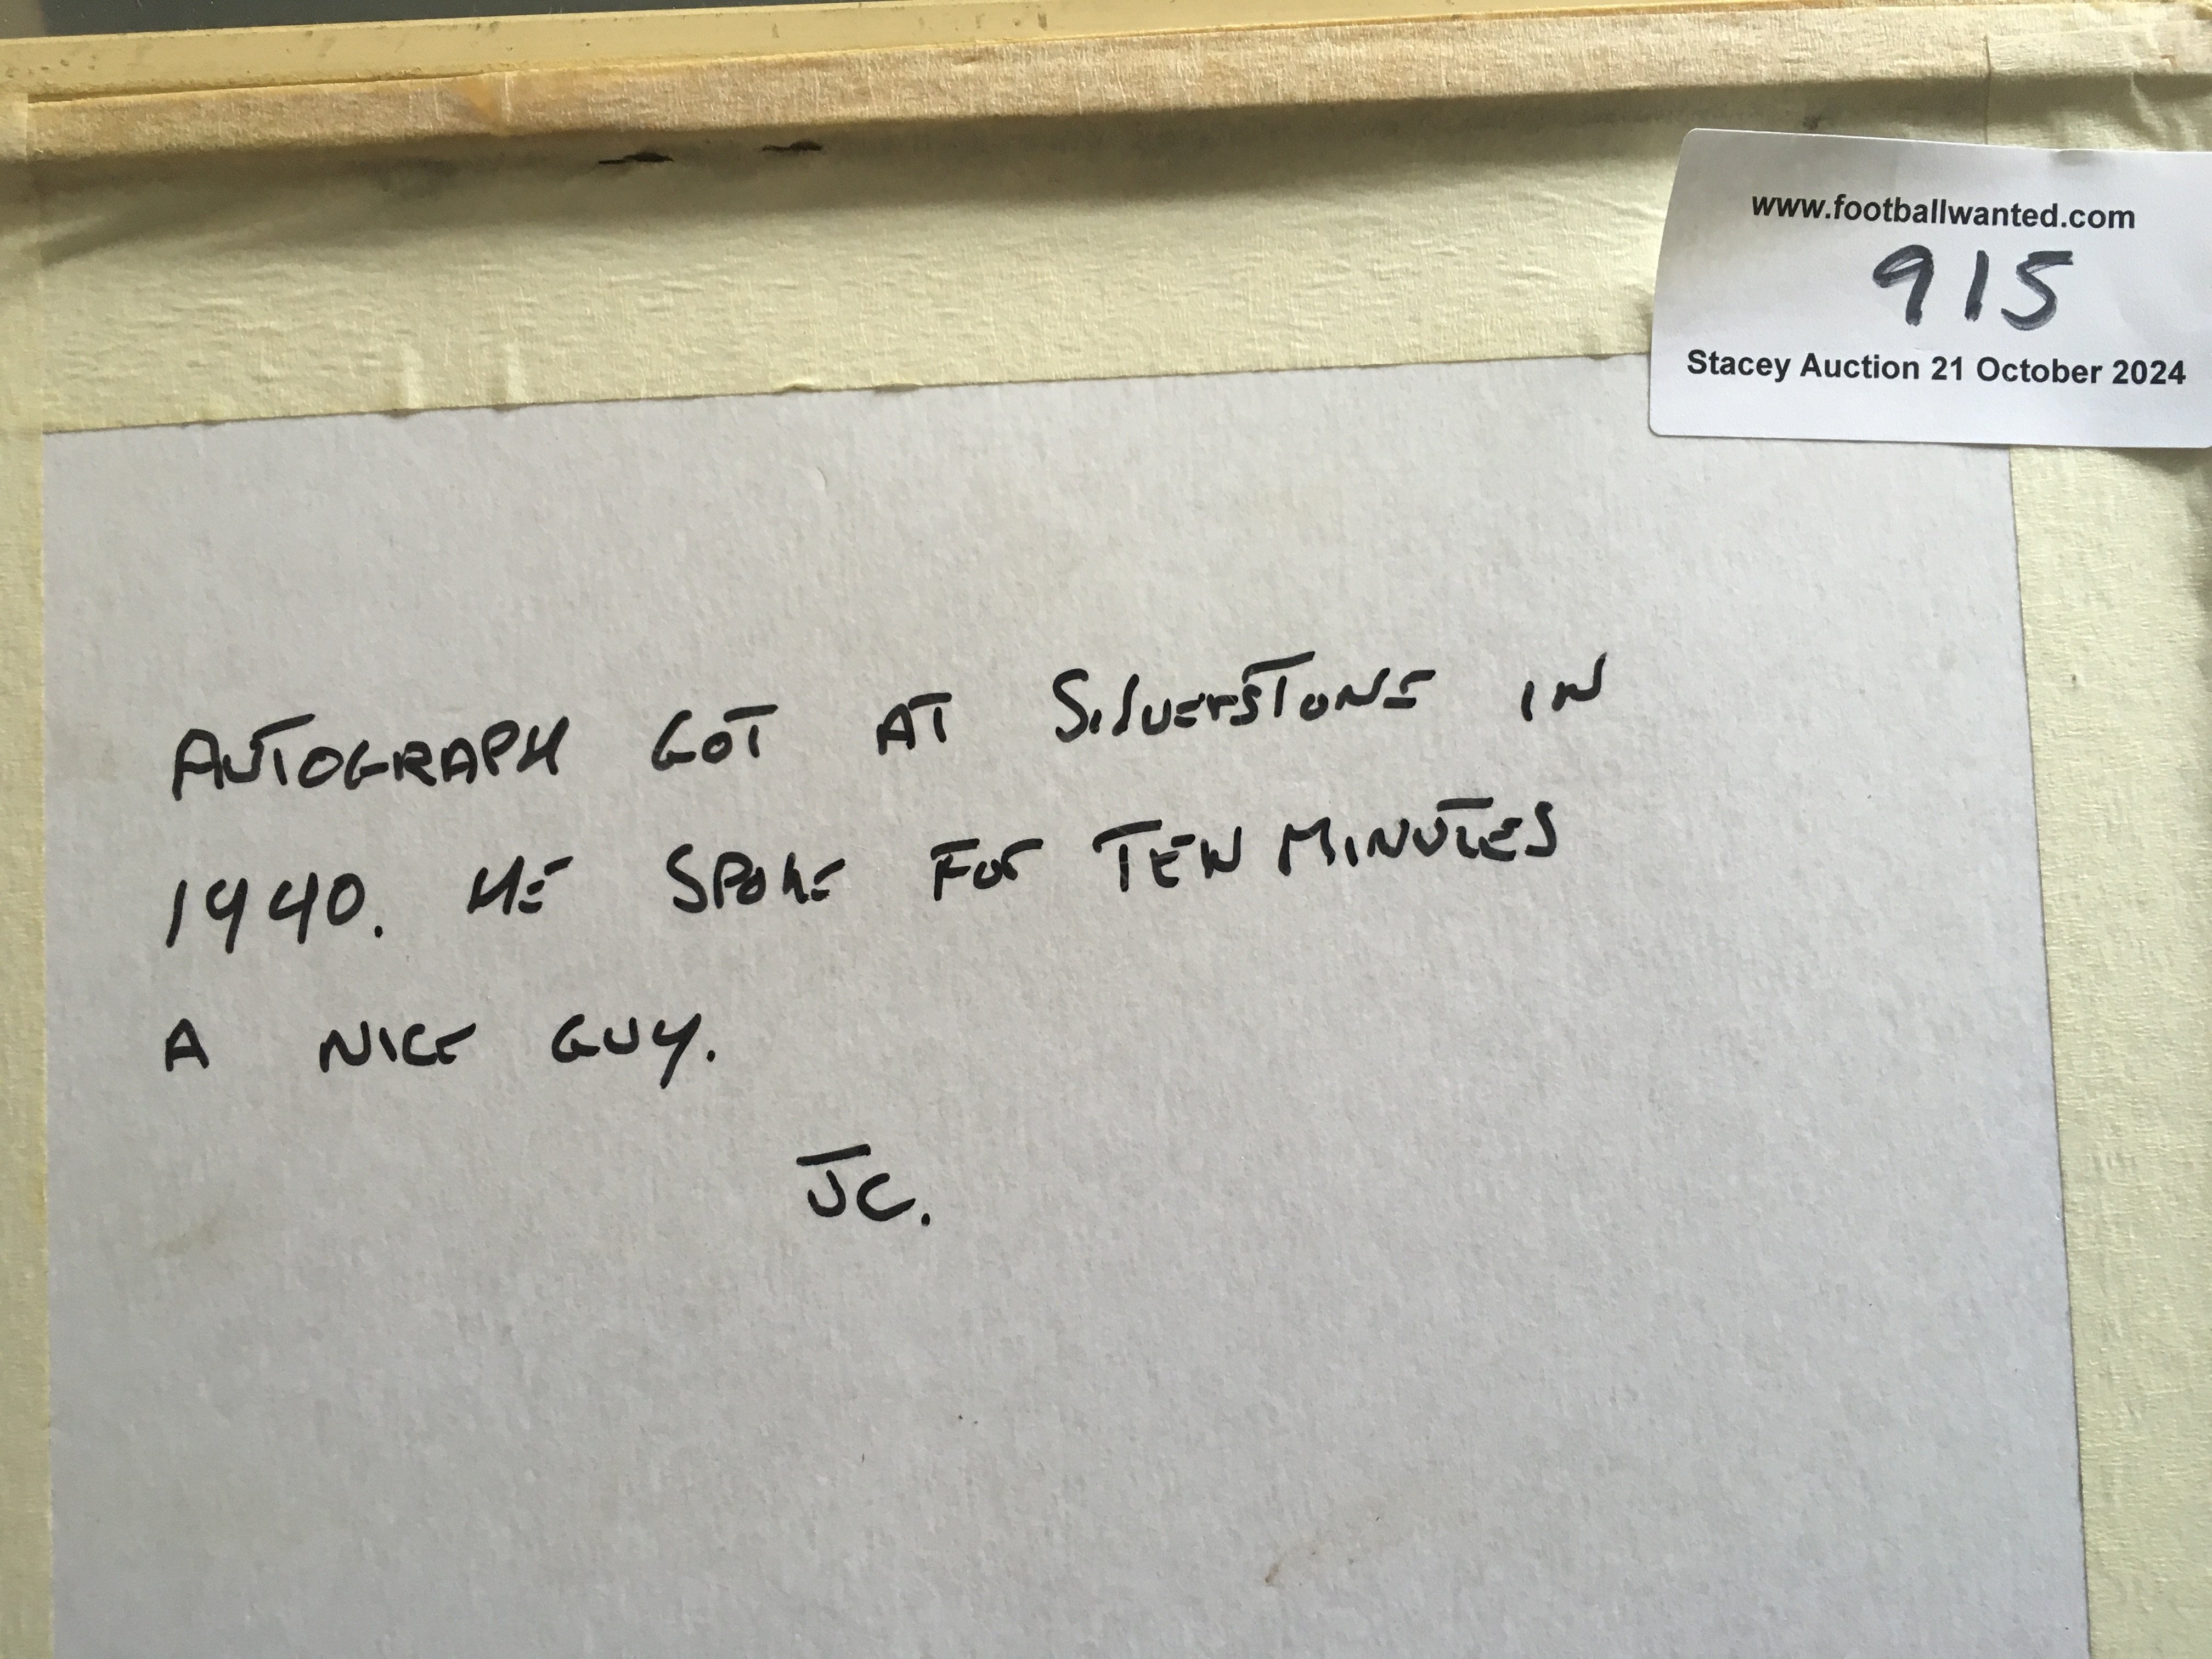 www.footballwanted.com
915
Stacey Auction 21 October 2024
AUTOGRAPH GOT AT SILVERSTONE IN
1940. HE SPOKE FOR TEN MINUTES
A NICE GUY.
JC.